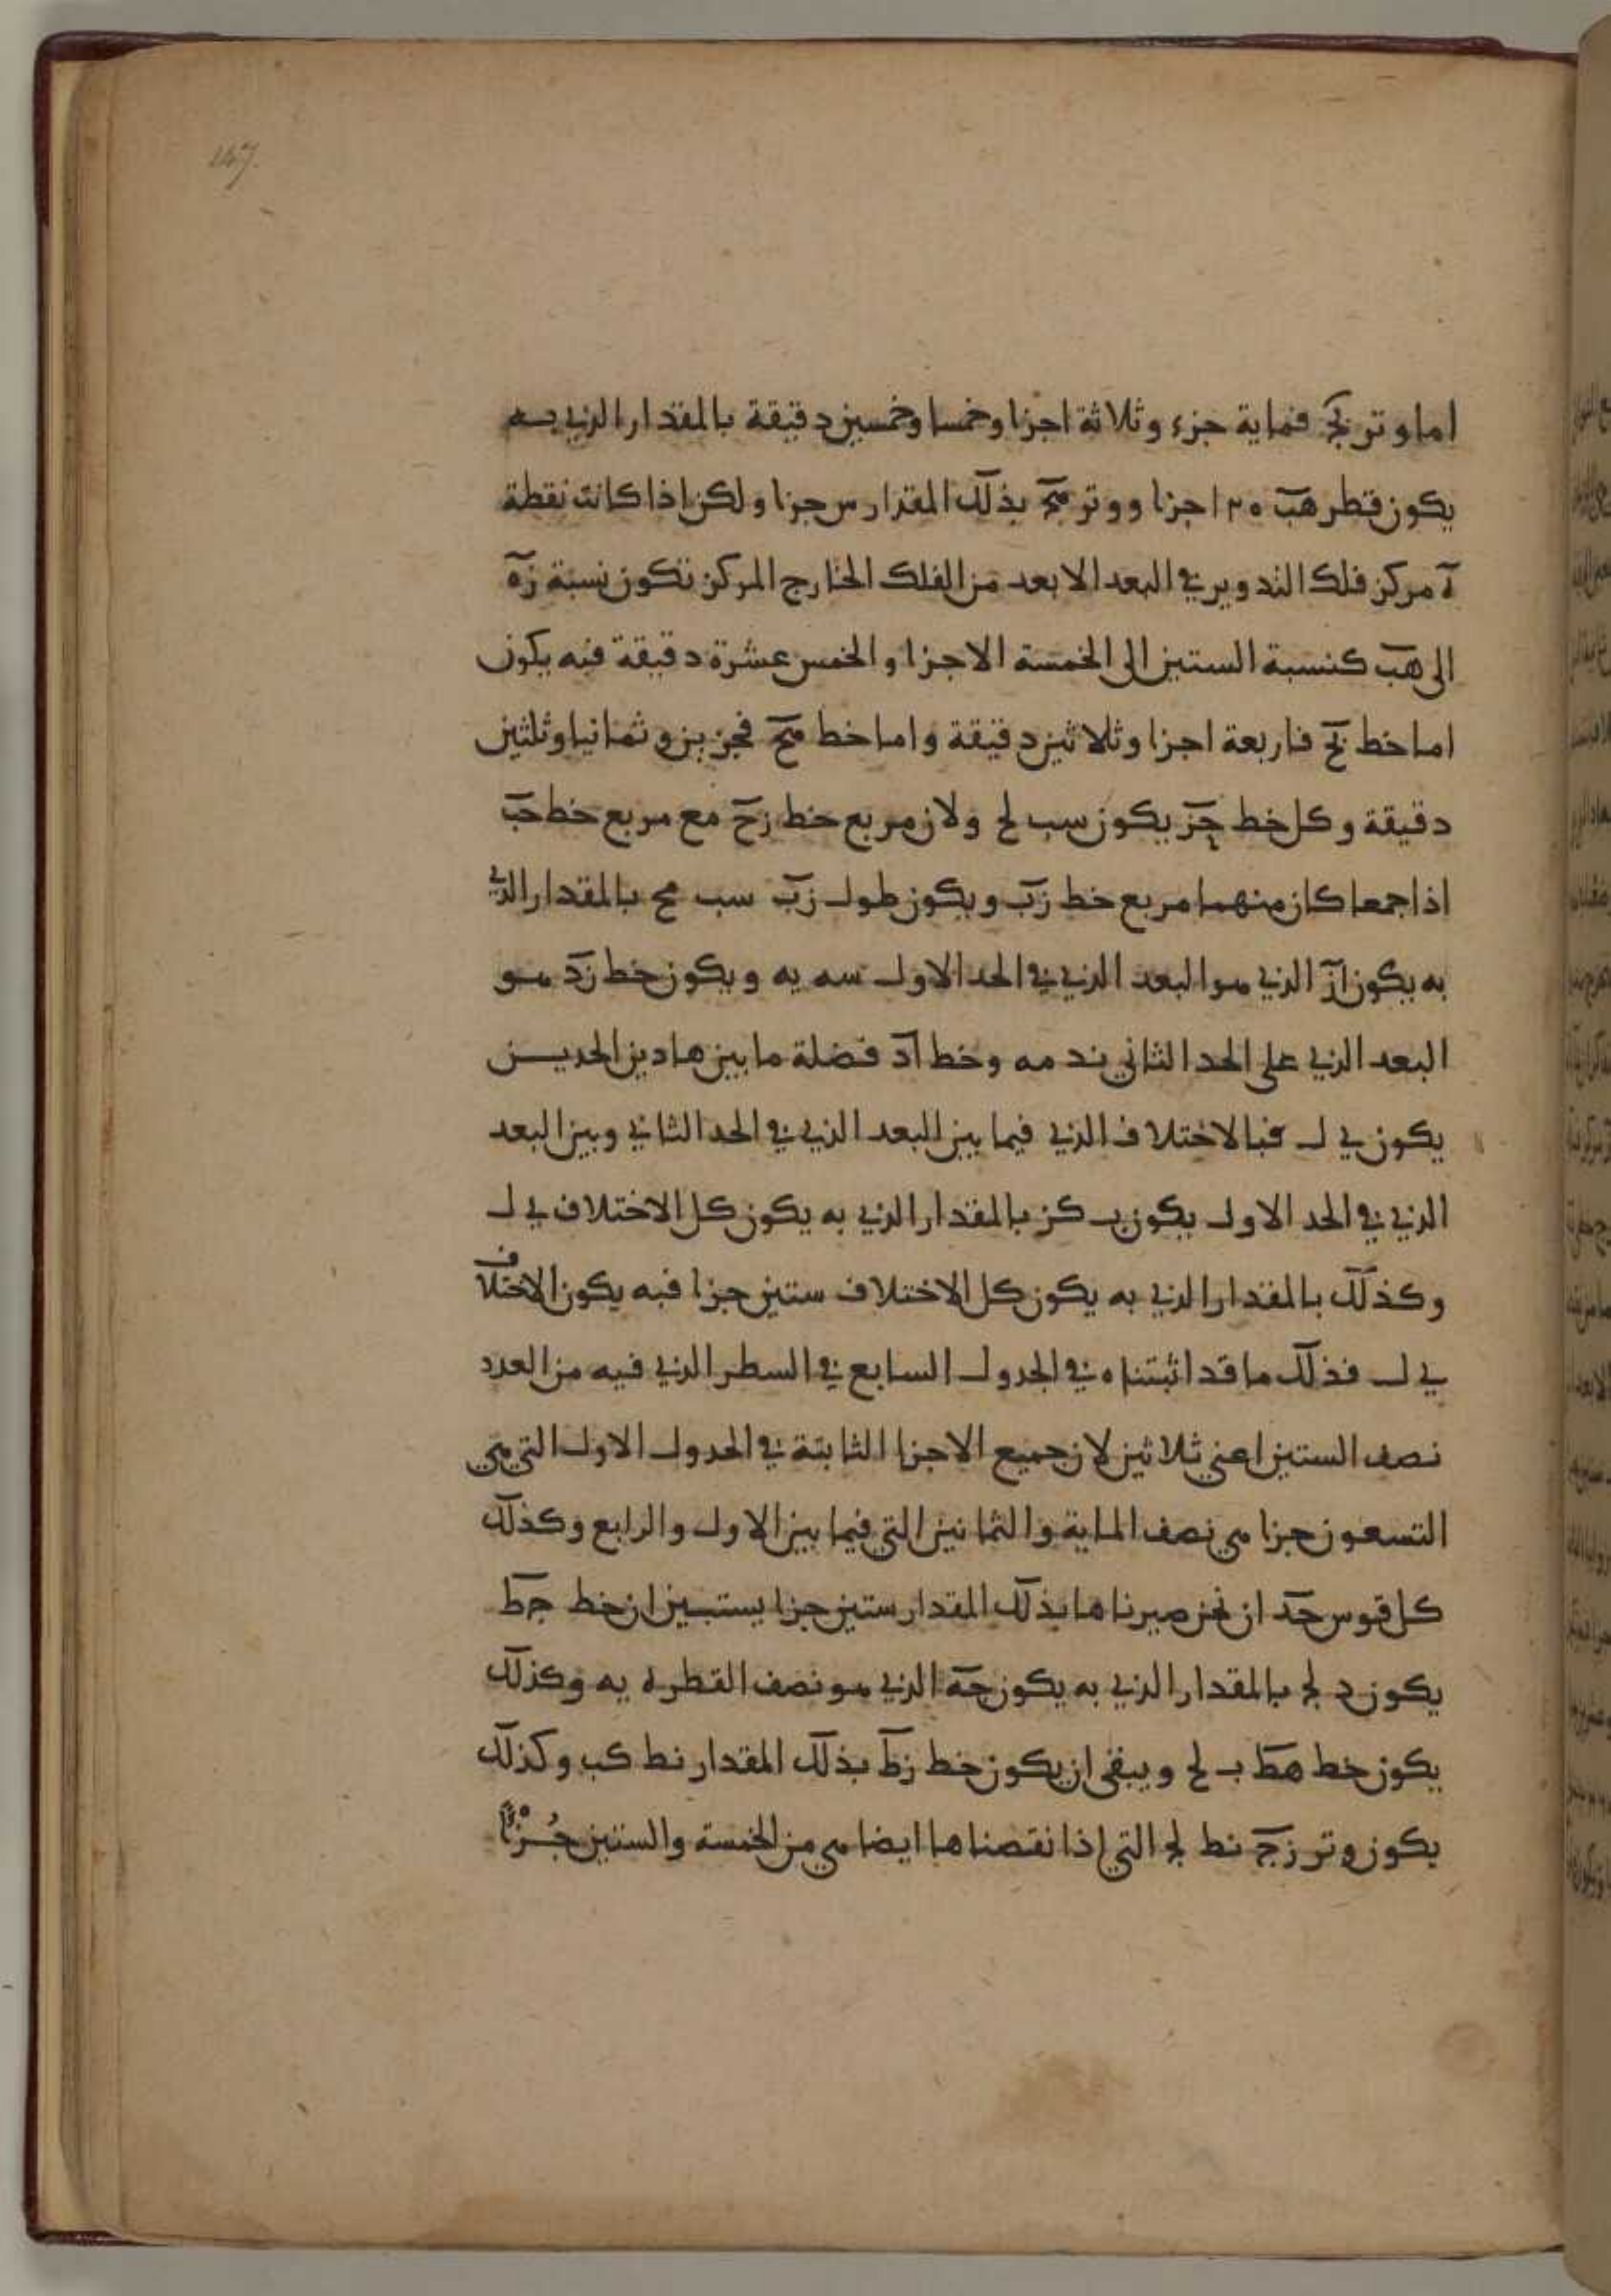 147.
اما وتر بح فماية جزء وثلاثة اجزا وخمسا وخمسين دقيقة بالمقدار الذي به
يكون قطر هب ١٢٠ جزا ووتر هح بذلك المقدار س جزا ولكن اذا كانت نقطة
ه مركز فلك التدوير في البعد الابعد من الفلك الخارج المركز تكون نسبة زه
الى هب كنسبة الستين الى الخمسة الاجزا والخمس عشرة دقيقة فبه يكون
اما خط بح فاربعة اجزا وثلاثين دقيقة واما خط هح فجزين وثمانيا وثلثين
دقيقة وكل خط حز يكون سب لح ولان مربع خط زح مع مربع خط حب
اذا جمعا كان منهما مربع خط زب ويكون طول زب سب مح بالمقدار الذي
به يكون از الذي هو البعد الذي في الحد الاول سه يه ويكون خط زد هو
البعد الذي على الحد الثاني ند مه وخط اد فضلة ما بين هاذين الحدين
يكون ي ل فبالاختلاف الذي فيما بين البعد الذي في الحد الثاني وبين البعد
الذي في الحد الاول يكون ب كز بالمقدار الذي به يكون كل الاختلاف ي ل
وكذلك بالمقدار الذي به يكون كل الاختلاف ستين جزا فبه يكون الاختلاف
ي ل فذلك ما قد اثبتناه في الجدول السابع في السطر الذي فيه من العدد
نصف الستين اعني ثلاثين لان جميع الاجزا الثابتة في الجدول الاول التي هي
التسعون جزا هي نصف الماية والثمانين التي فيما بين الاول والرابع وكذلك
كل قوس جد ان نحن صيرناها بذلك المقدار ستين جزا يستبين ان خط جط
يكون د لج بالمقدار الذي به يكون جه الذي هو نصف القطر ه يه وكذلك
يكون خط هط ب لح ويبقى ان يكون خط زط بذلك المقدار نط كب وكذلك
يكون وتر زج نط لج التي اذا نقصناها ايضا هي من الخمسة والستين جُزْءًا